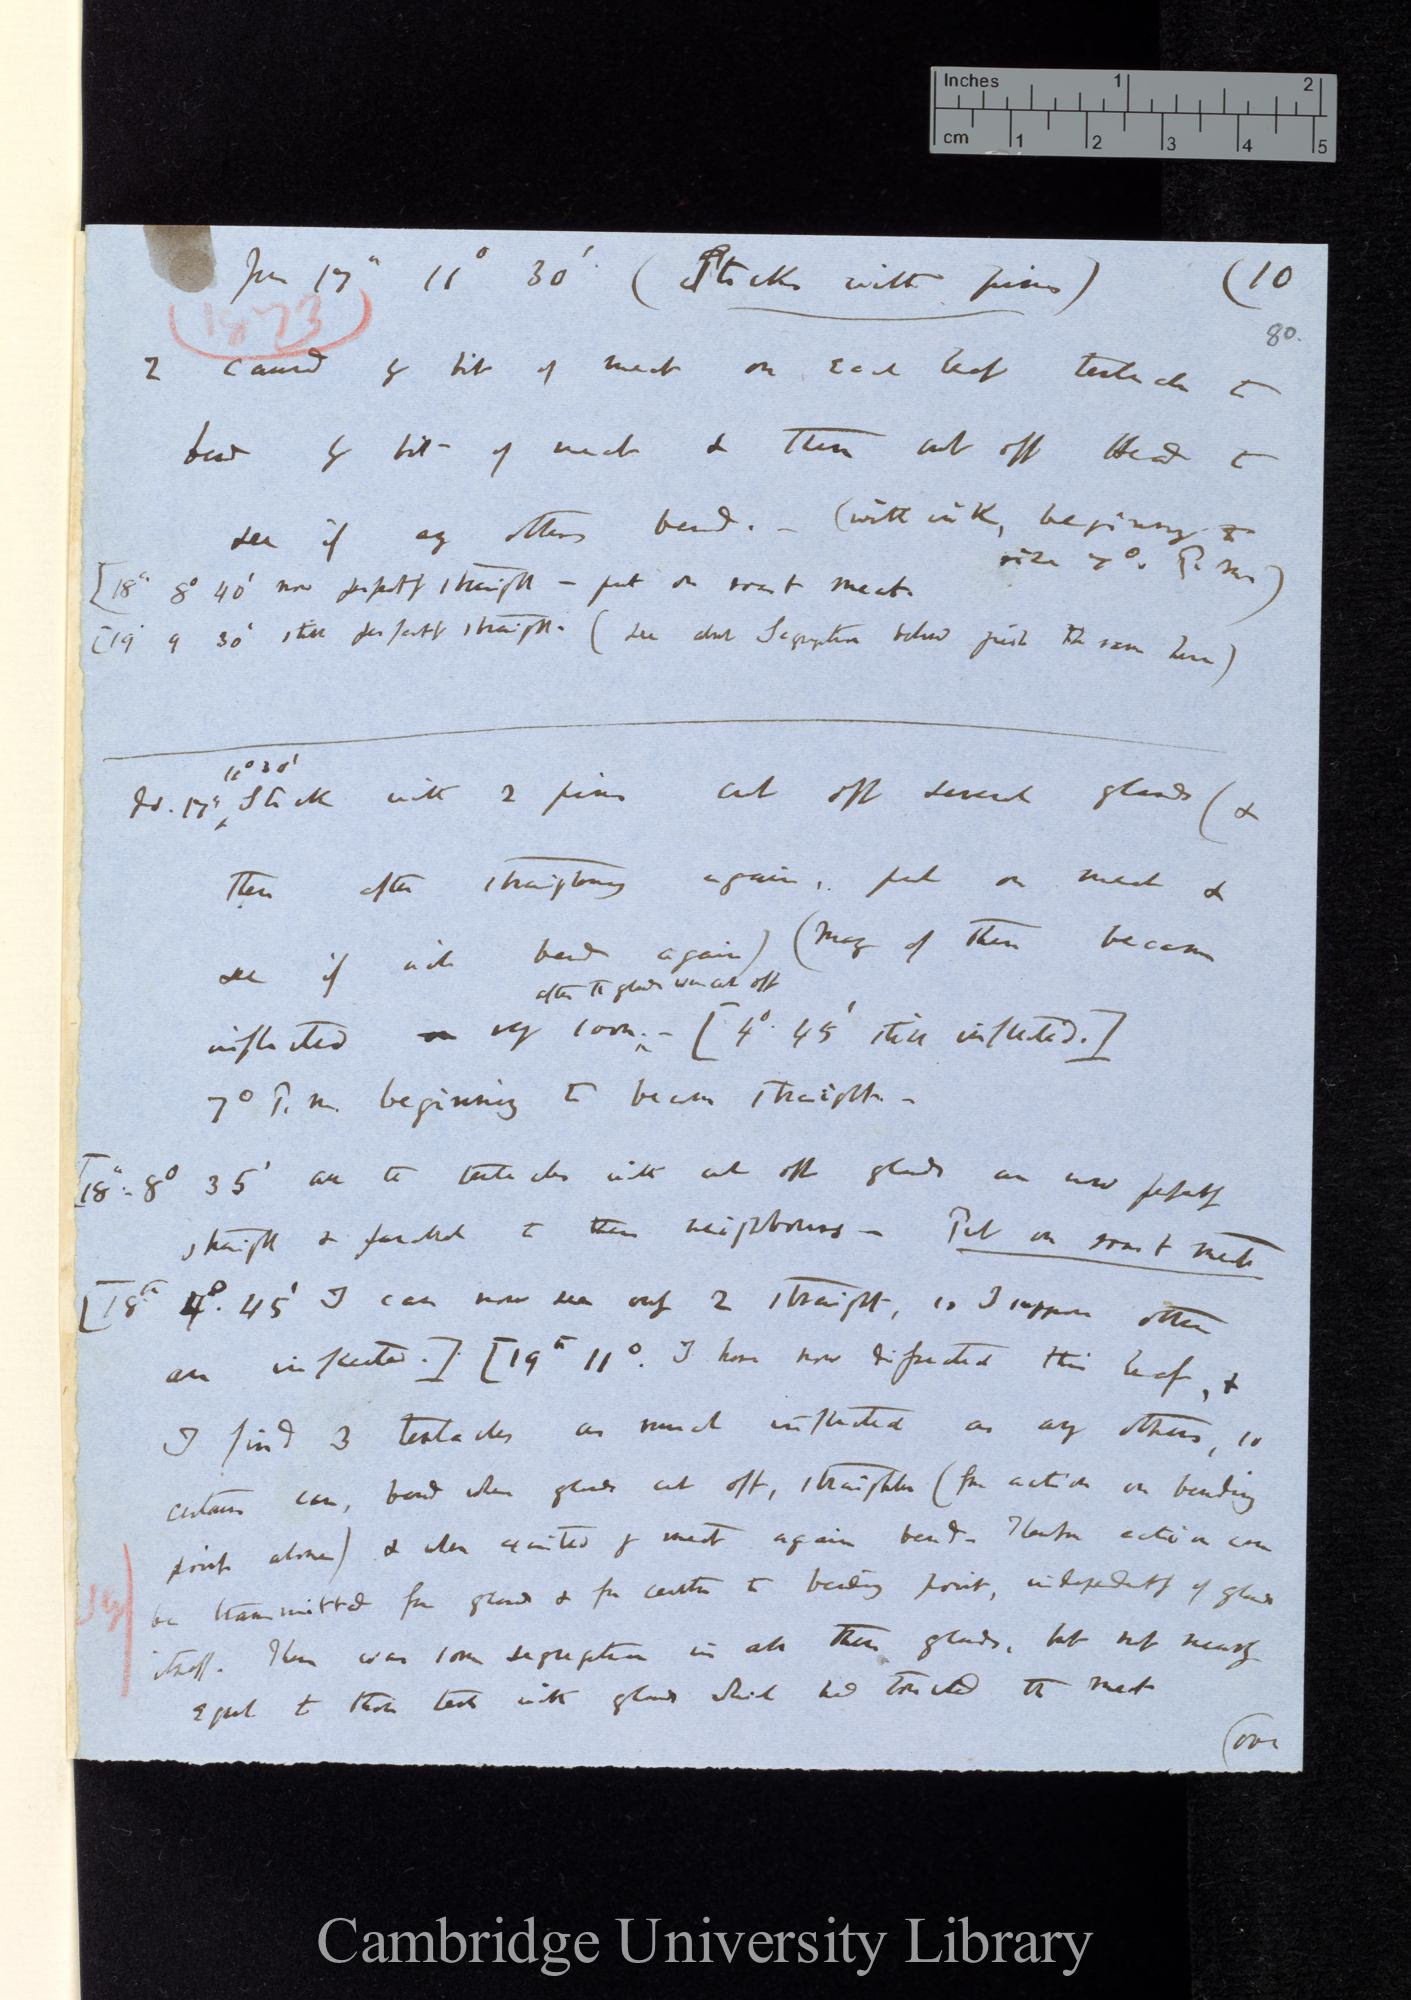 Inches 1 2
cm 1 2 3 4 5
Jun 17th 11° 30' (Sticks with pins) (10
(1873)
80.
I caused by bit of meat on each leaf tentacle to
bend by bit of meat & then cut off Head to
see if any others bend. — (with ink, beginning to
rise 7°. P. m.)
[18th 8° 40' now perfectly straight — put on roast meat
[19 9 30' still perfectly straight. (see about Segregation below just the same here)
11° 30'
do. 17th Stick with 2 pins cut off several glands (&
then after straightening again, put on meat &
see if will bend again) (Many of them became
after the glands were cut off
inflected very soon. — [4°. 45' still inflected.]
7° P. m. beginning to become straight. —
[18th. 8° 35' all the tentacles with cut off glands are now perfectly
straight & parallel to their neighbours — Put on roast meat
[18th 4°. 45' I can now see only 2 straight, so I suppose others
are inflected.] [19th 11°. I have now dissected this leaf, &
I find 3 tentacles as much inflected as any others, so
certain can, bend when glands cut off, straighten (from action on bending
point alone) & when excited by meat again bend. Therefore action can
be transmitted from glands & from centre to bending point, independently of glands
itself. There was some segregation in all these glands, but not nearly
equal to those tent with glands which had touched the meat
(over
Cambridge University Library